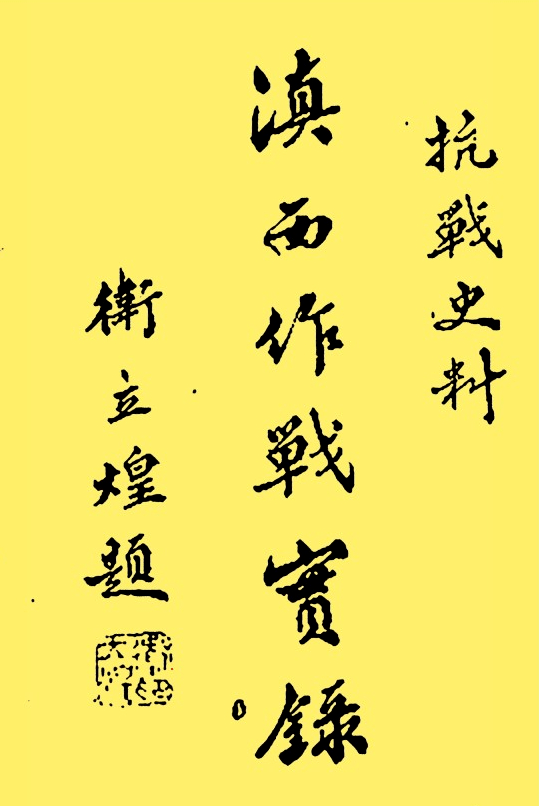 抗戰史料
滇西作戰實錄
衛立煌題